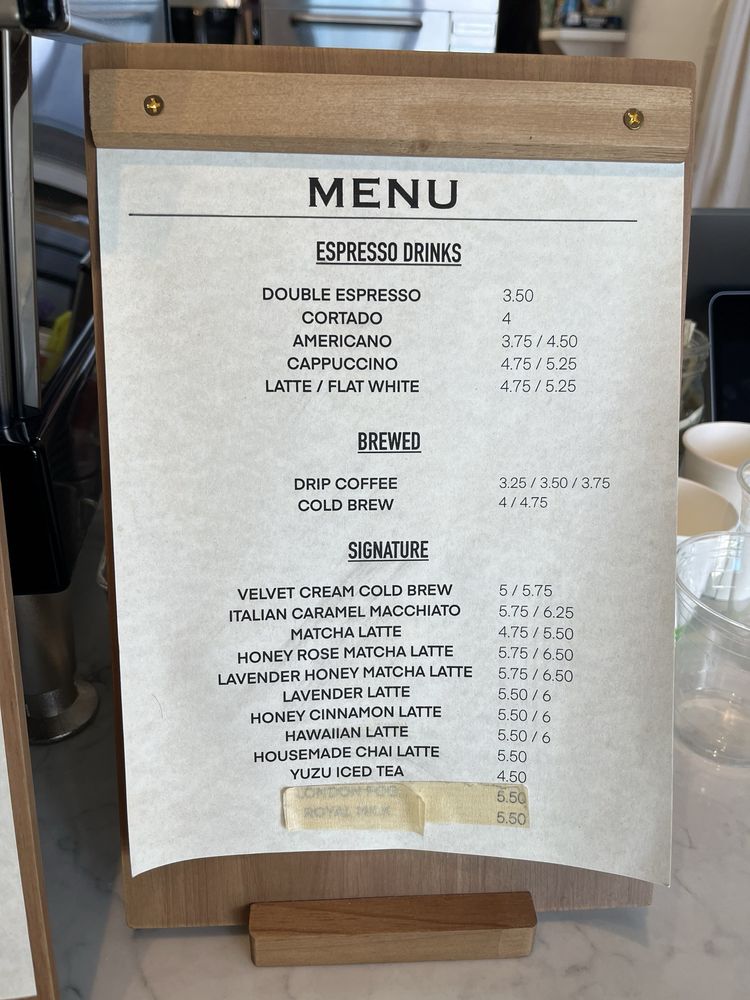 MENU
ESPRESSO DRINKS
DOUBLE ESPRESSO 3.50
CORTADO 4
AMERICANO 3.75 / 4.50
CAPPUCCINO 4.75 / 5.25
LATTE / FLAT WHITE 4.75 / 5.25
BREWED
DRIP COFFEE 3.25 / 3.50 / 3.75
COLD BREW 4 / 4.75
SIGNATURE
VELVET CREAM COLD BREW 5 / 5.75
ITALIAN CARAMEL MACCHIATO 5.75 / 6.25
MATCHA LATTE 4.75 / 5.50
HONEY ROSE MATCHA LATTE 5.75 / 6.50
LAVENDER HONEY MATCHA LATTE 5.75 / 6.50
LAVENDER LATTE 5.50 / 6
HONEY CINNAMON LATTE 5.50 / 6
HAWAIIAN LATTE 5.50 / 6
HOUSEMADE CHAI LATTE 5.50
YUZU ICED TEA 4.50
LONDON FOG 5.50
ROYAL MILK 5.50